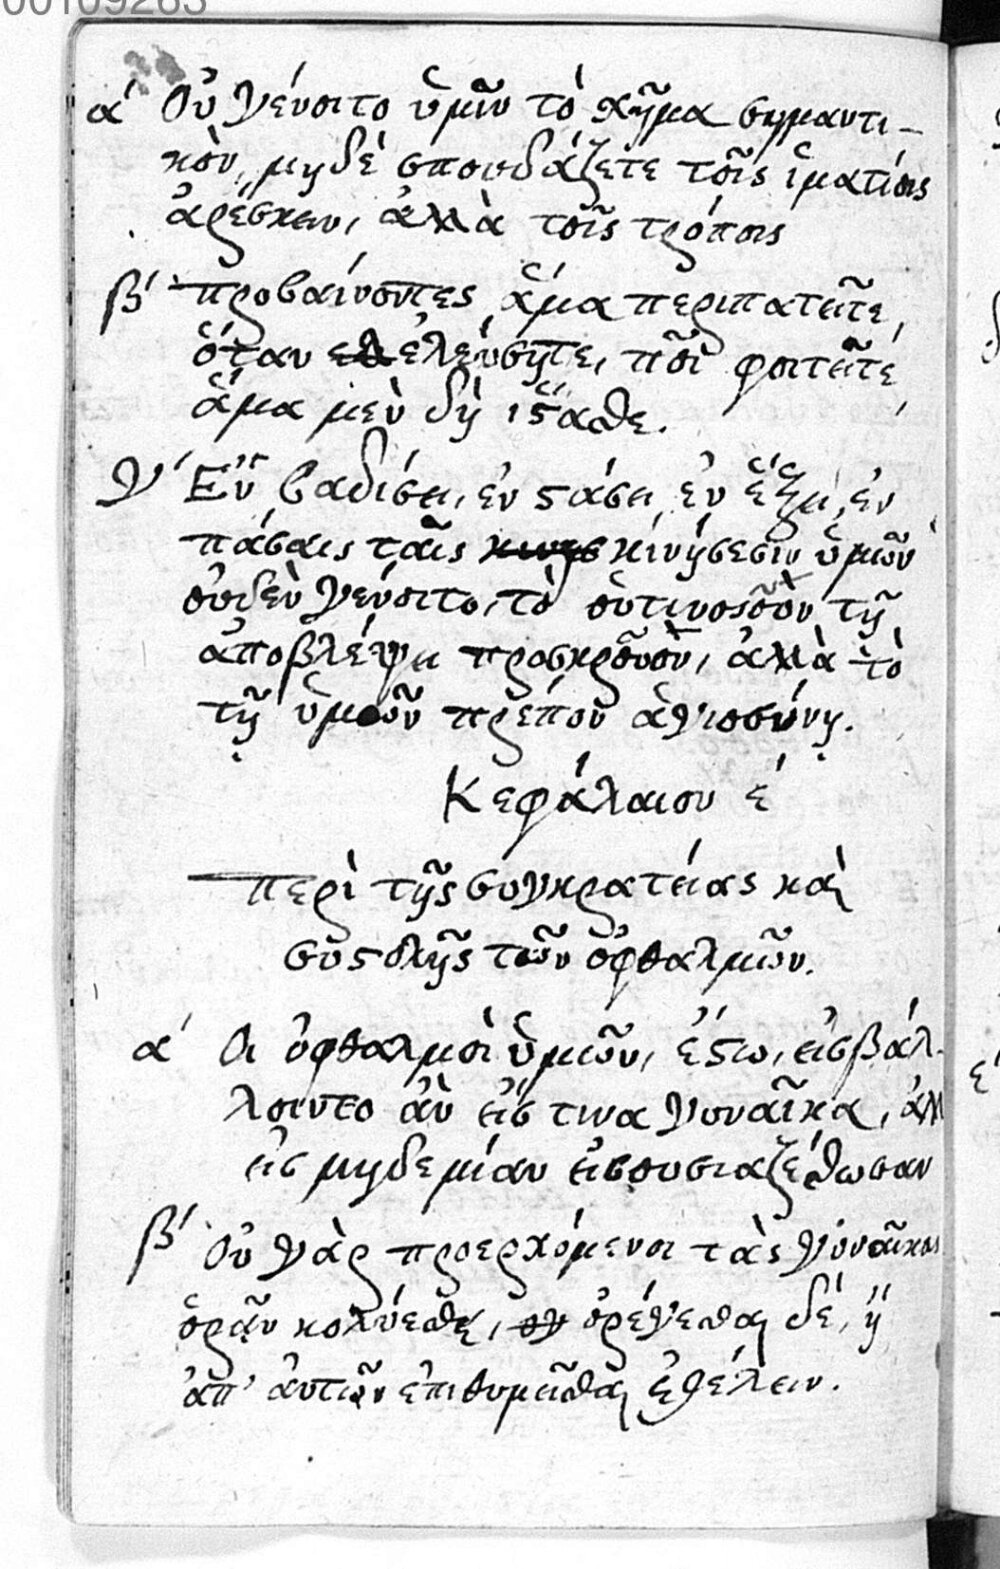 00109263
ά Οὐ γένοιτο ὑμῖν τὸ σχῆμα σημαντι-
κὸν, μηδὲ σπουδάζετε τοῖς ἱματίοις
ἀρέσκειν, ἀλλὰ τοῖς τρόποις
β΄ προβαίνοντες ἅμα περιπατεῖτε,
ὅταν ελ ἐλεύσητε, ποῖ φοιτεῖτέ,
ἅμα μὲν δὴ ἵστασθε.
γ΄ Ἐν βαδίσει, ἐν στάσει ἐν ἕξει, ἐν
πάσαις ταῖς κίνήσεσιν ὑμῶν
οὐδὲν γένοιτο, τὸ οὑτινοσοῦν τῇ
ἀποβλέψει προσκροῦον, ἀλλὰ τὸ
τῇ ὑμῶν πρέπον ἁγιοσύνῃ.
Κεφάλαιον έ
περὶ τῆς συγκρατείας καὶ
συστολῆς τῶν ὀφθαλμῶν.
ά Οι ὀφθαλμοὶ ὑμῶν, ἔστω, εἰσβάλ-
λοιντο ἂν εἴς τινα γυναῖκα, ἀλλ
εἰς μηδεμίαν εἰσουσιαζέσθωσαν
β΄ Οὐ γὰρ προερχόμενοι τὰς γύναῖκας
ὁρᾷν κολύεσθε, ὀρέγεσθαι δέ, ἢ
ἀπ' ἀυτῶν ἐπιθυμεῖσθαι ἐθέλειν.